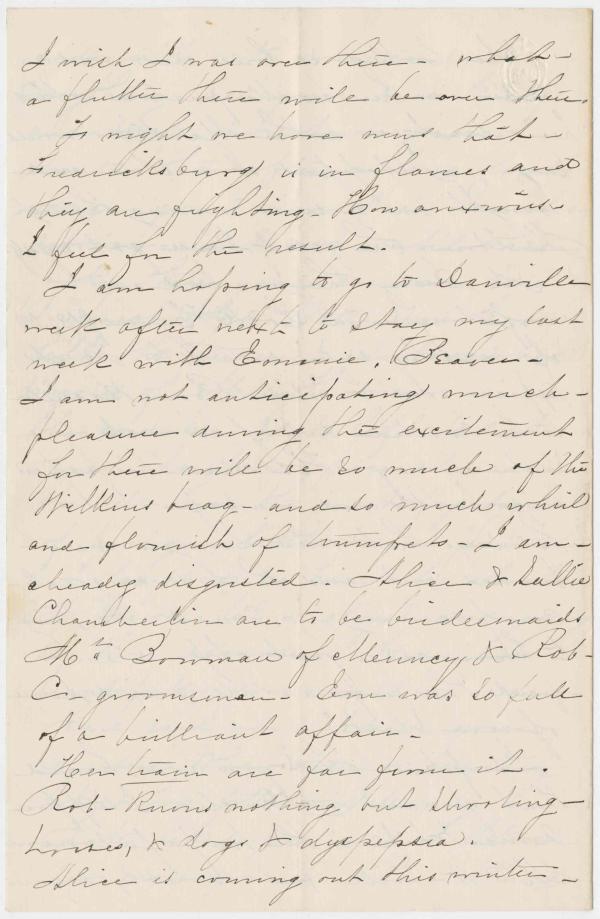 I wish I was over there - what -
a flutter there will be over there.
To night we have news that -
Fredricksburg is in flames and
they are fighting - How anxious
I feel for the result.
I am hoping to go to Danville
week after next to stay my last
week with Emmie. Beaver -
I am not anticipating much -
pleasure during the excitement
for there will be so much of the
Wilkins brag - and so much whirl
and flourish of trumpets - I am -
already disgusted. Alice & Sallie
Chamberlin are to be bridesmaids
Mr Bowman of Muncy & Rob -
C - groomsmen - Em was so full
of a brilliant affair -
Her train are far from it.
Rob - Knows nothing but shooting -
horses, & dogs & dyspepsia.
Alice is coming out this winter -